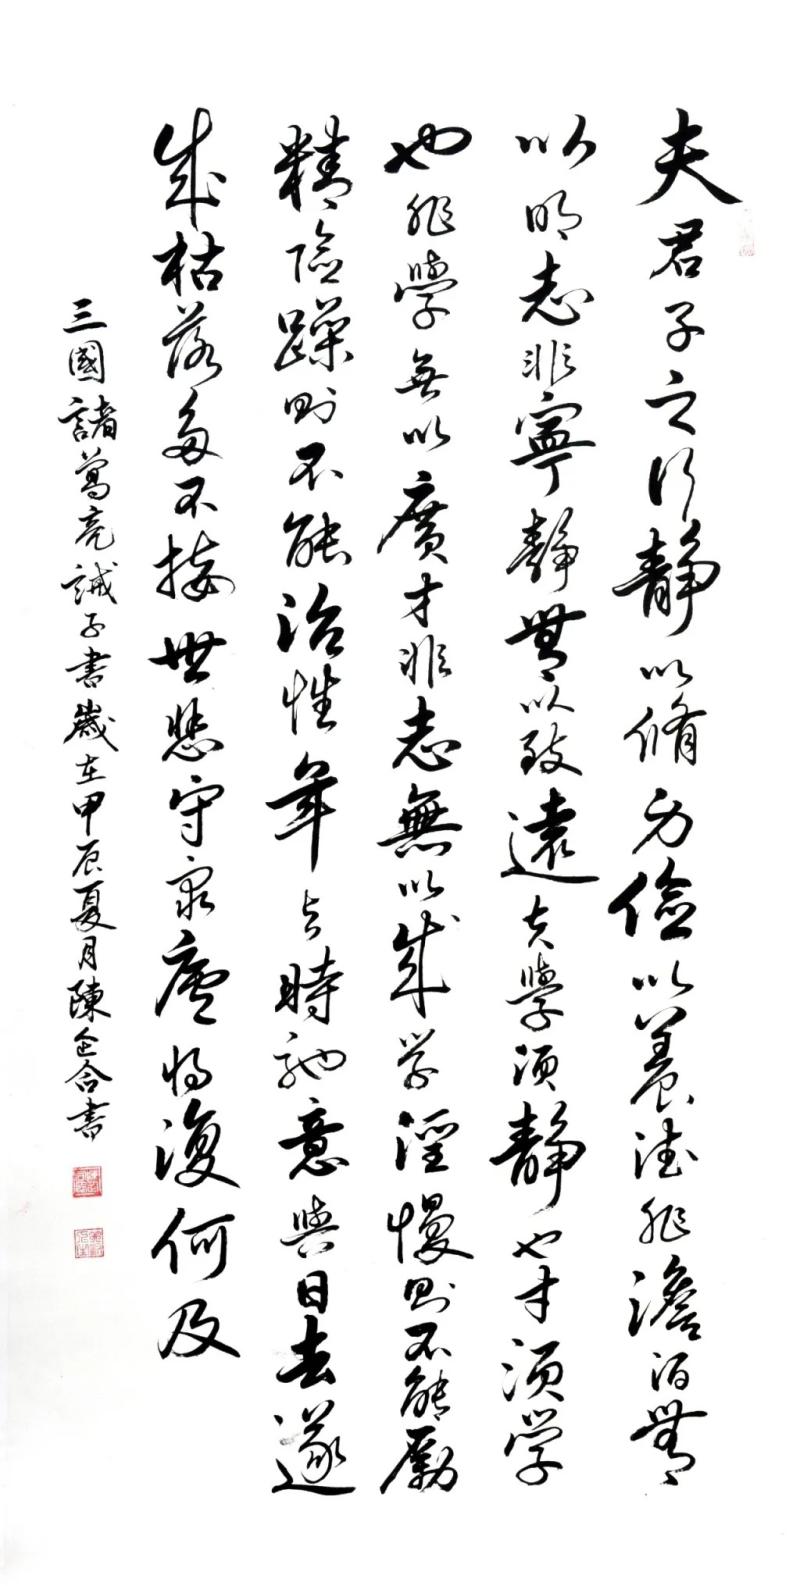 夫君子之行静以脩身儉以養德非澹泊無
以明志非寧静無以致遠夫學須静也才須学
也非學無以廣才非志無以成学淫慢則不能勵
精險躁則不能治性年与時馳意與日去遂
成枯落多不接世悲守窮廬將復何及
三國諸葛亮誡子書歲在甲辰夏月陳企合書